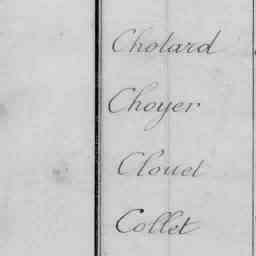 Cholard
Choyer
Clouet
Collet